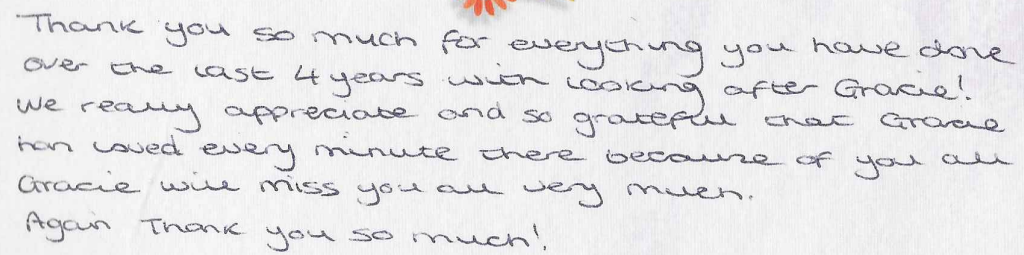 Thank you so much for everything you have done
over the last 4 years with looking after Gracie!
We really appreciate and so grateful that Gracie
has loved every minute there because of you all
Gracie will miss you all very much.
Again Thank you so much!